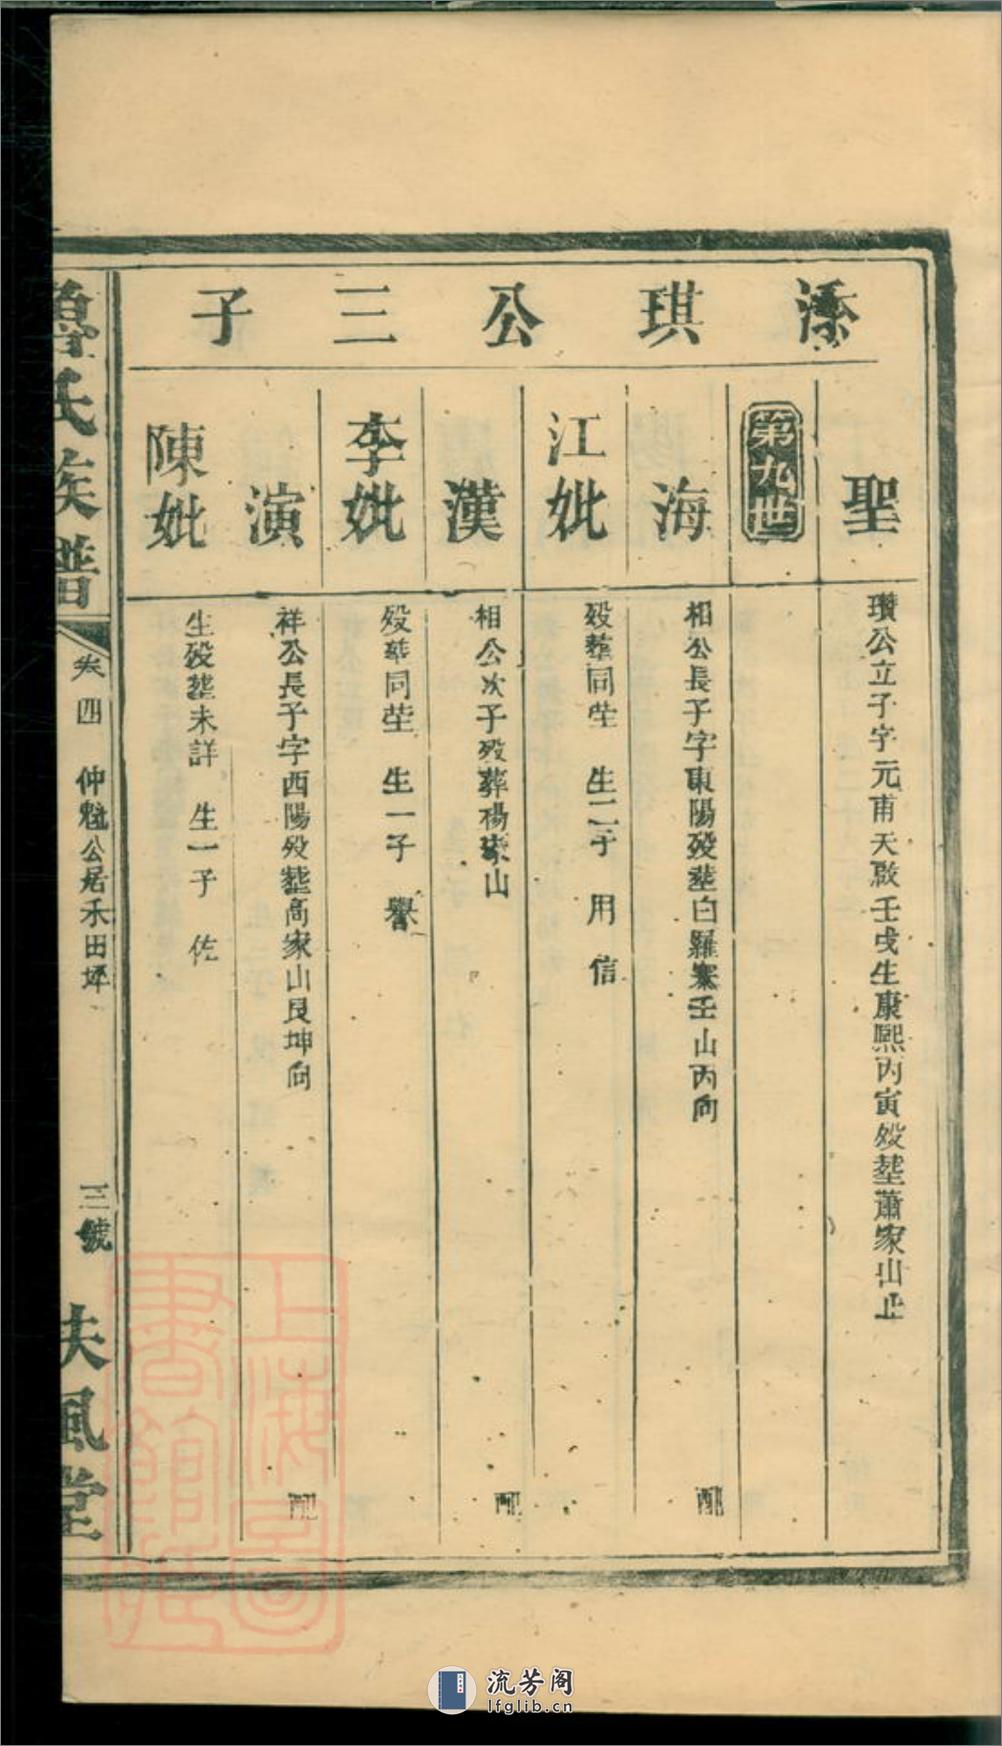 添琪公三子
聖
瓚公立子字元甫天啟壬戌生康熙丙寅歿塟蕭家山止
第九世
海
相公長子字東陽歿塟白羅寨壬山丙向
配
江妣
歿塟同塋 生二子 用 信
漢
相公次子歿葬楊家山
配
李妣
歿葬同塋 生一子 譽
演
祥公長子字西陽歿塟高家山艮坤向
配
陳妣
生歿塟未詳 生一子 佐
魯氏族譜
卷四 仲魁公居禾田坪
三號
扶風堂
上海圖書館藏
流芳阁
lfglib.cn